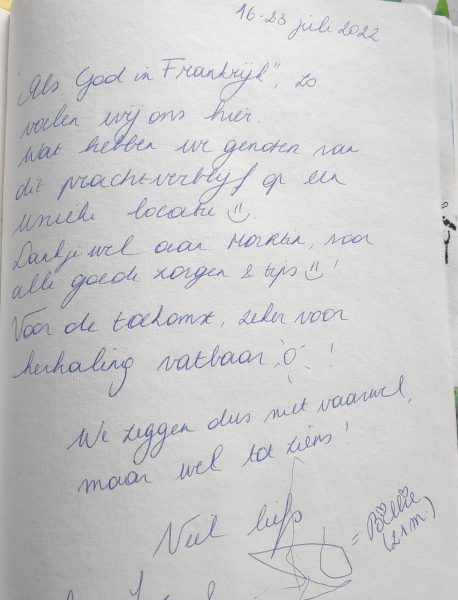 16-23 juli 2022
"Als God in Frankrijk", zo
voelen wij ons hier.
Wat hebben we genoten van
dit prachtverblijf op een
unieke locatie
Dankjewel aan Martin, voor
alle goede zorgen & tips !
Voor de toekomst, zeker voor
herhaling vatbaar !
We zeggen dus niet vaarwel,
maar wel tot ziens!
Veel liefs
= Billie
(21 m.)